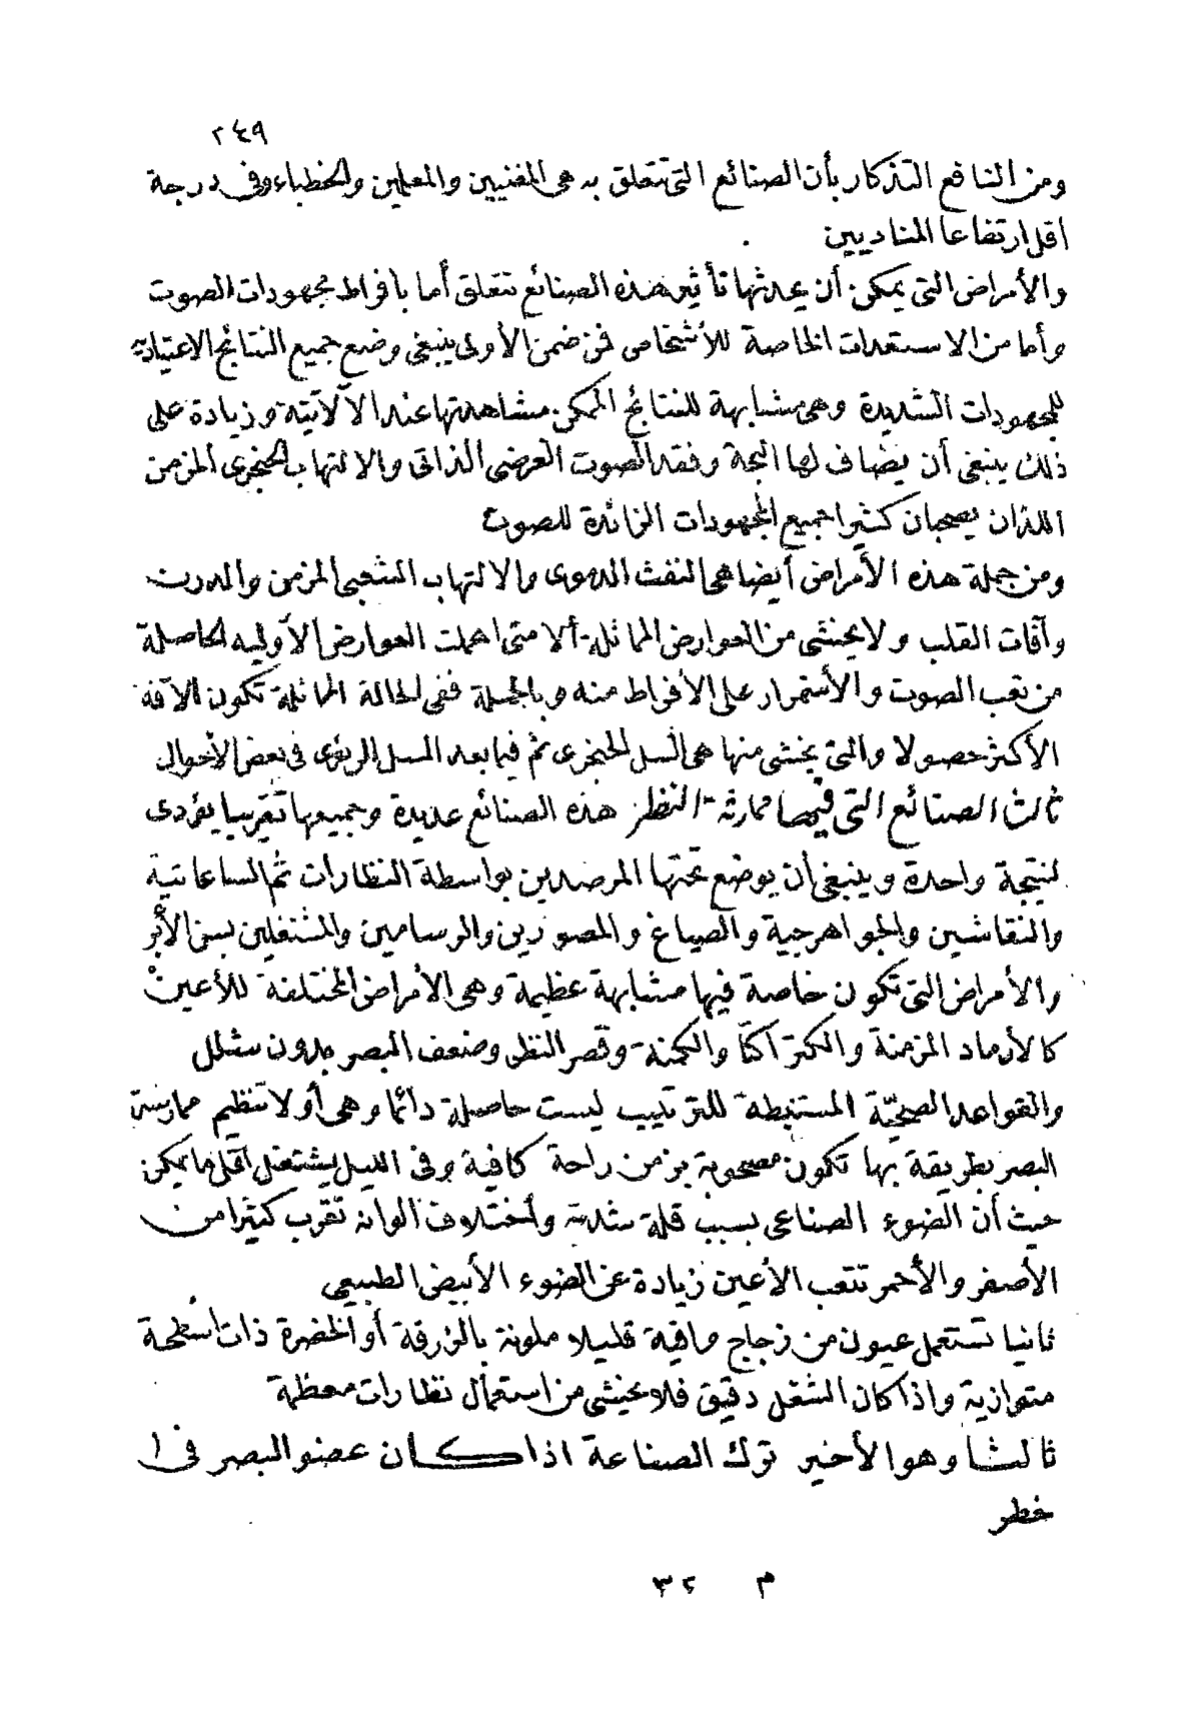 ٢٤٩
ومن النافع التذكار بأن الصنائع التى تتعلق به هى المغنيين والمعلمين والخطباء وفى درجة
اقل ارتفاعا المناديين
والأمراض التى يمكن أن يحدثها تأثير هذه الصنائع تتعلق أما بافراط مجهودات الصوت
وأما من الاستعدات الخاصة للأشخاص فمن ضمن الأولى ينبغى وضع جميع النتائج الاعتياديه
للمجهودات الشديدة وهى مشابهة للنتائج الممكن مشاهدتها عند الآلاتية وزيادة على
ذلك ينبغى أن يضاف لها البحة وفقد الصوت العرضى الذاتى والالتهاب الحنجرى المزمن
اللذان يصحبان كثيرا جميع المجهودات الزائدة للصوت
ومن جملة هذه الأمراض أيضا هى النفث الدموى والالتهاب الشعبى المزمن والدرن
وآفات القلب ولا يخشى من العوارض المماثلة ألا متى اهملت العوارض الأوليه الحاصلة
من تعب الصوت والأستمرار على الأفراط منه وبالجملة ففى الحالة المماثلة تكون الآفة
الأكثر حصولا والتى يخشى منها هى السل الحنجرى ثم فيما بعد السل الرئوى فى بعض الأحوال
ثالث الصنائع التى فيها ممارثة النظر هذه الصنائع عديدة وجميعها تقريبا يؤدى
لنتيجة واحدة وينبغى أن يوضع تحتها المرصدين بواسطة النظارات ثم الساعاتية
والنقاشين والجواهرجية والصياغ والمصورين والرسامين والمشتغلين بسن الأبر
والأمراض التى تكون خاصة فيها مشابهة عظيمة وهى الأمراض المختلفة للأعين
كالأرماد المزمنة والكتراكتا والكمنة وقصر النظر وضعف البصر بدون شلل
والقواعد الصحيّة المستنبطة للترتيب ليست حاصلة دائما وهى أولا تنظيم ممارسة
البصر بطريقة بها تكون مصحوبة بزمن راحة كافية وفى الليل يشتغل اقل ما يمكن
حيث أن الضوء الصناعى بسبب قلة شدته وأختلاف الوانه تقرب كثيرا من
الأصفر والأحمر تتعب الأعين زيادة عن الضوء الأبيض الطبيعى
ثانيا تستعمل عيون من زجاج واقية قليلا ملونة بالزرقة أو الخضرة ذات اسطحة
متوازية واذا كان الشغل دقيق فلا يخشى من استعمال نظارات معظمة
ثالثا وهو الأخير ترك الصناعة اذا كان عضو البصر فى ا
خطر
م ٣٢